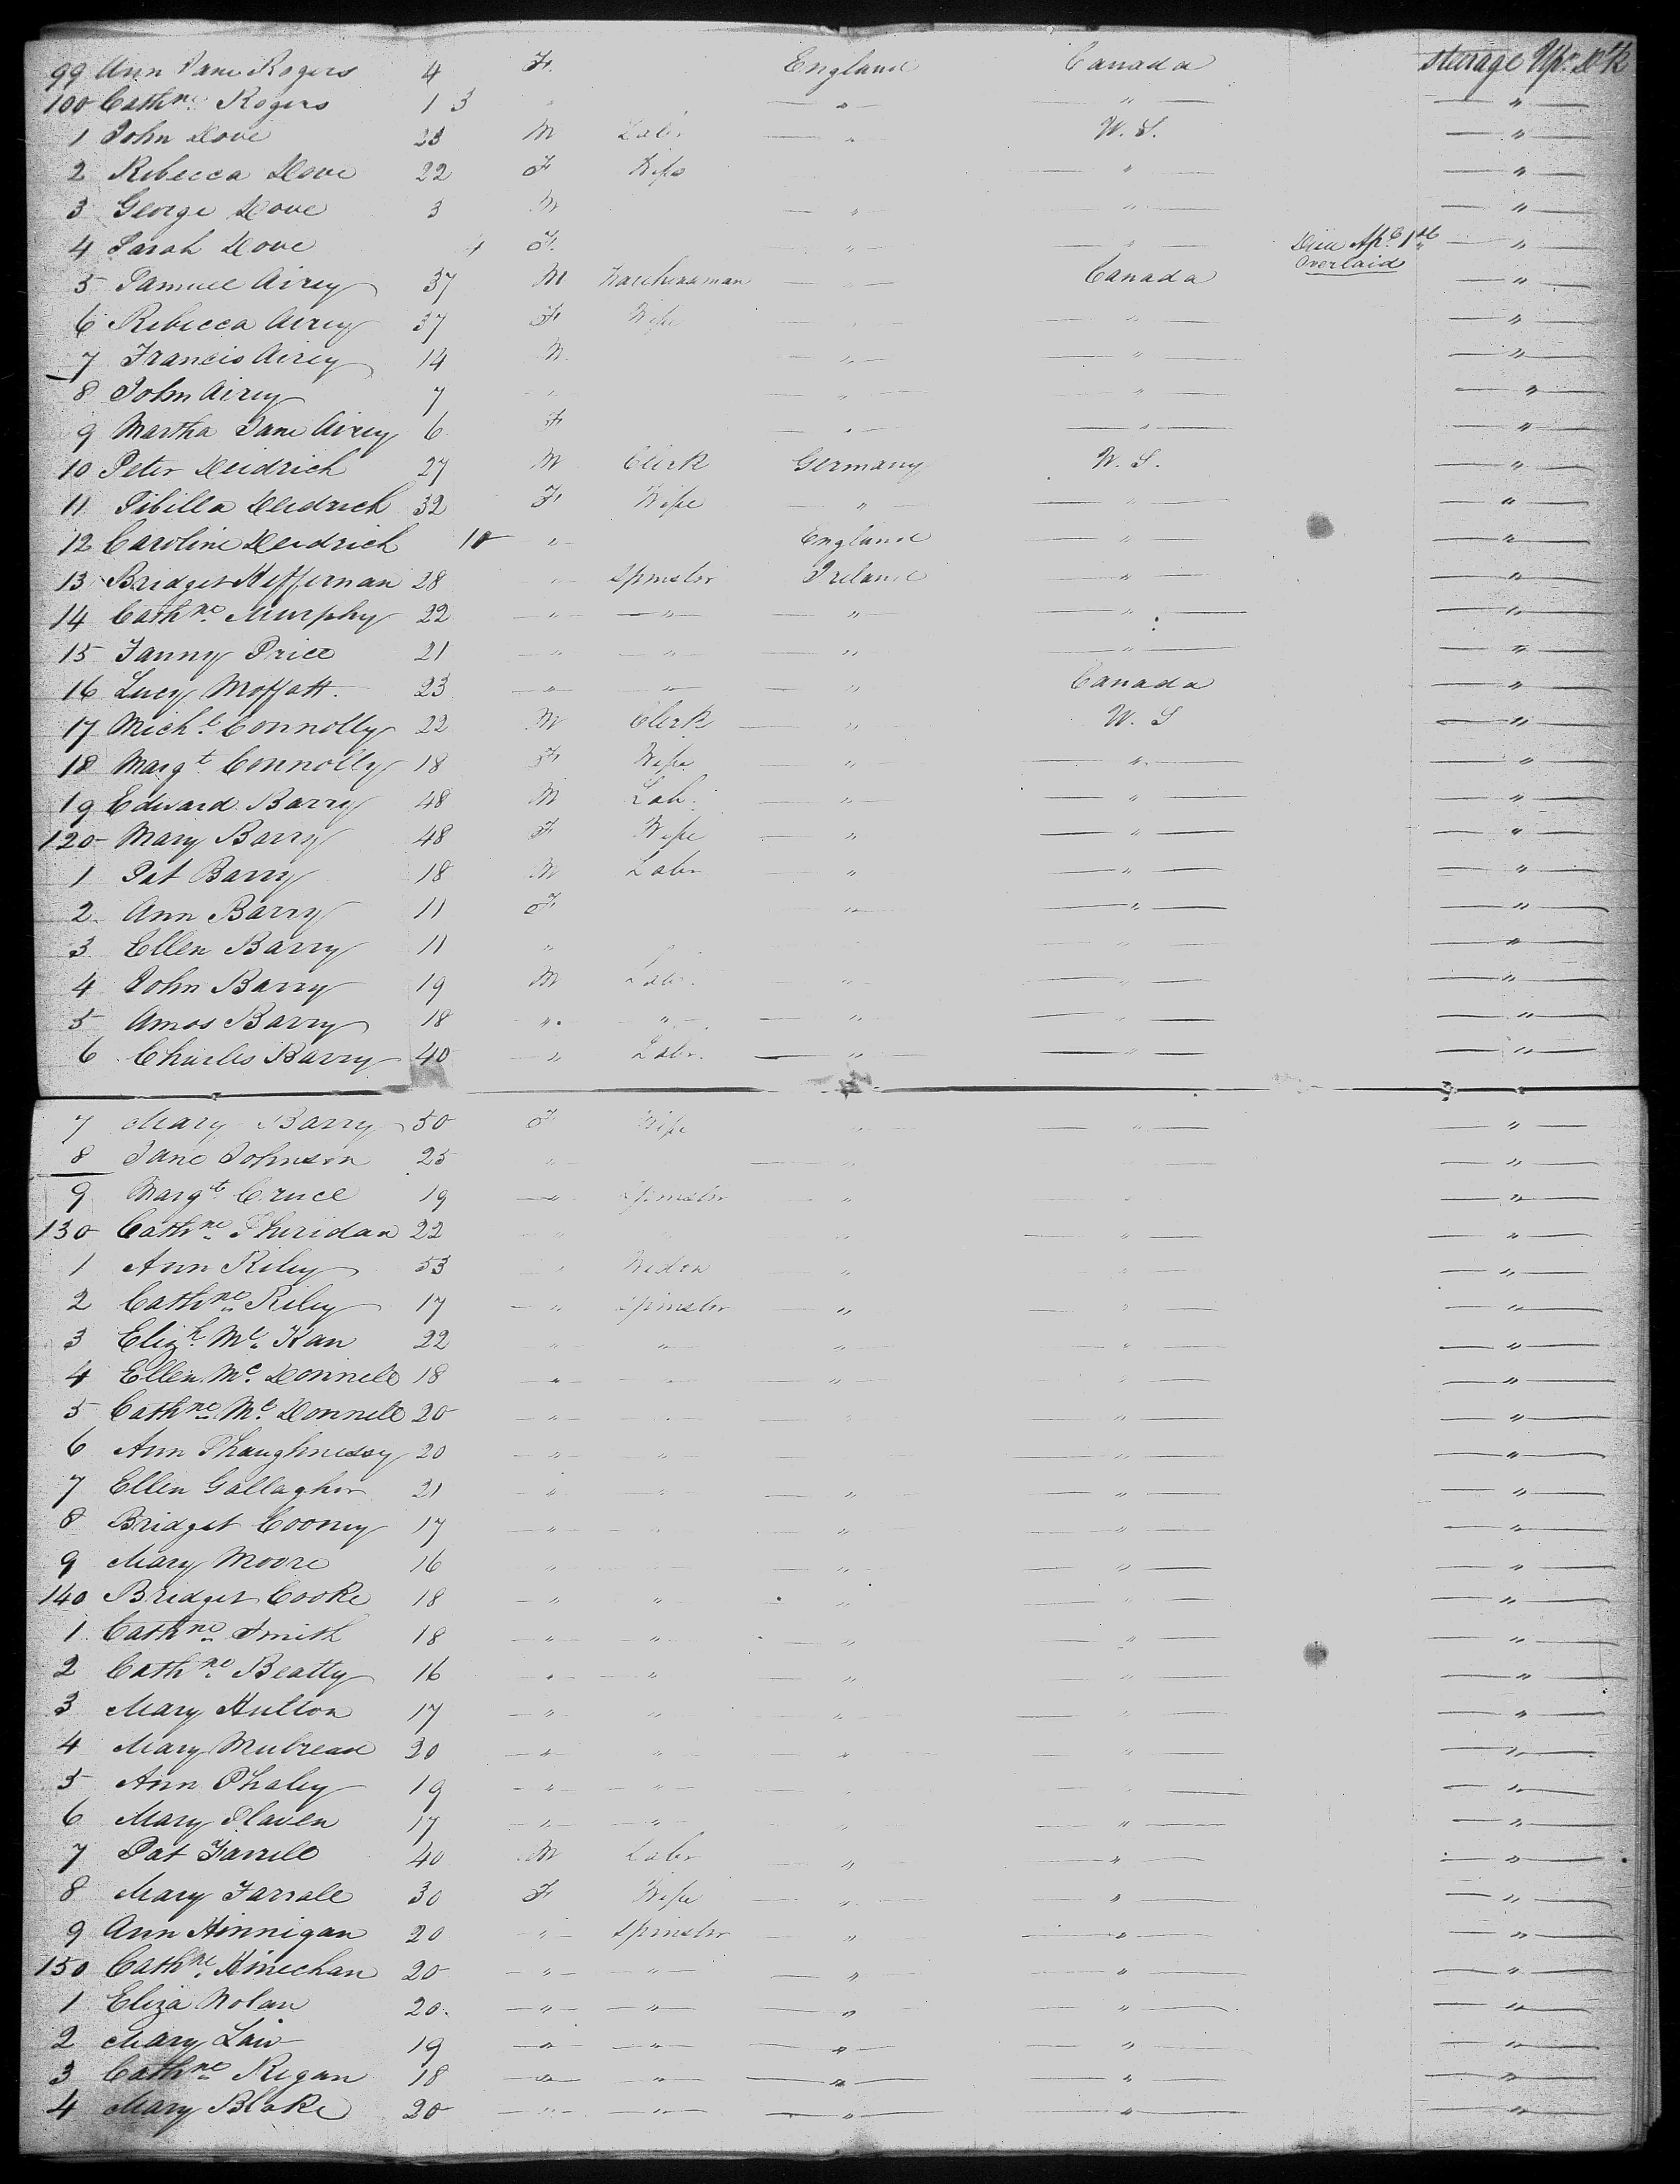 99 Ann Jane Rogers 4 F. England Canada Steerage Upr. Dk
100 Cathne. Rogers 1 3 " " " "
1 John Dove 23 M Labr " U. S. "
2 Rebecca Dove 22 F Wife " "
3 George Dove 3 M " " "
4 Sarah Dove F. " " Died Apl. 1st "
Overlaid
5 Samuel Airey 37 M " Canada "
6 Rebecca Airey 37 F Wife " " "
7 Francis Airey 14 M. " " "
8 John Airey 7 " " " "
9 Martha Jane Airey 6 F " " "
10 Peter Deidrich 27 M Clerk Germany U. S. "
11 Sibilla Deidrich 32 F Wife " " "
12 Caroline Deidrich 10 " England " "
13 Bridget Heffernan 28 " Spinster Ireland " "
14 Cathne. Murphy 22 " " " " "
15 Fanny Price 21 " " " " "
16 Lucy Moffatt. 23 " " " Canada "
17 Michl. Connolly 22 M Clerk " U. S "
18 Margt. Connolly 18 F Wife " " "
19 Edward Barry 48 M Lab. " " "
120 Mary Barry 48 F Wife " " "
1 Pat Barry 18 M Labr " " "
2 Ann Barry 11 F " " "
3 Ellen Barry 11 " " "
4 John Barry 19 M Labr. " " "
5 Amos Barry 18 " " " " "
6 Charles Barry 40 " Labr. " " "
7 Mary Barry 50 F Wife " " "
8 Jane Johnson 25 " " "
9 Margt. Cruce 19 " Spinster " " "
130 Cathne. Sheridan 22 " " " "
1 Ann Riley 53 " Widow " " "
2 Cathne. Riley 17 " Spinster " " "
3 Elizh. Mc. Kan 22 " " " " "
4 Ellen Mc. Donnell 18 " " " " "
5 Cathne. Mc. Donnell 20 " " " " "
6 Ann Shaughnessy 20 " " " "
7 Ellen Gallagher 21 " " " " "
8 Bridget Cooney 17 " " " " "
9 Mary Moore 16 " " " "
140 Bridget Cooke 18 " " " " "
1 Cathne. Smith 18 " " " " "
2 Cathne. Beatty 16 " " " " "
3 Mary Hulton 17 " " " " "
4 Mary 20 " " " " "
5 Ann Phaley 19 " " " " "
6 Mary Slaven 17 " " " " "
7 Pat Farrell 40 M Labr " " "
8 Mary Farrall 30 F Wife " " "
9 Ann Hinnigan 20 " Spinster " " "
150 Cathne. Kinechan 20 " " " " "
1 Eliza Nolan 20. " " " " "
2 Mary Law 19 " " " " "
3 Cathne. Regan 18 " " " " "
4 Mary Blake 20 " " " " "